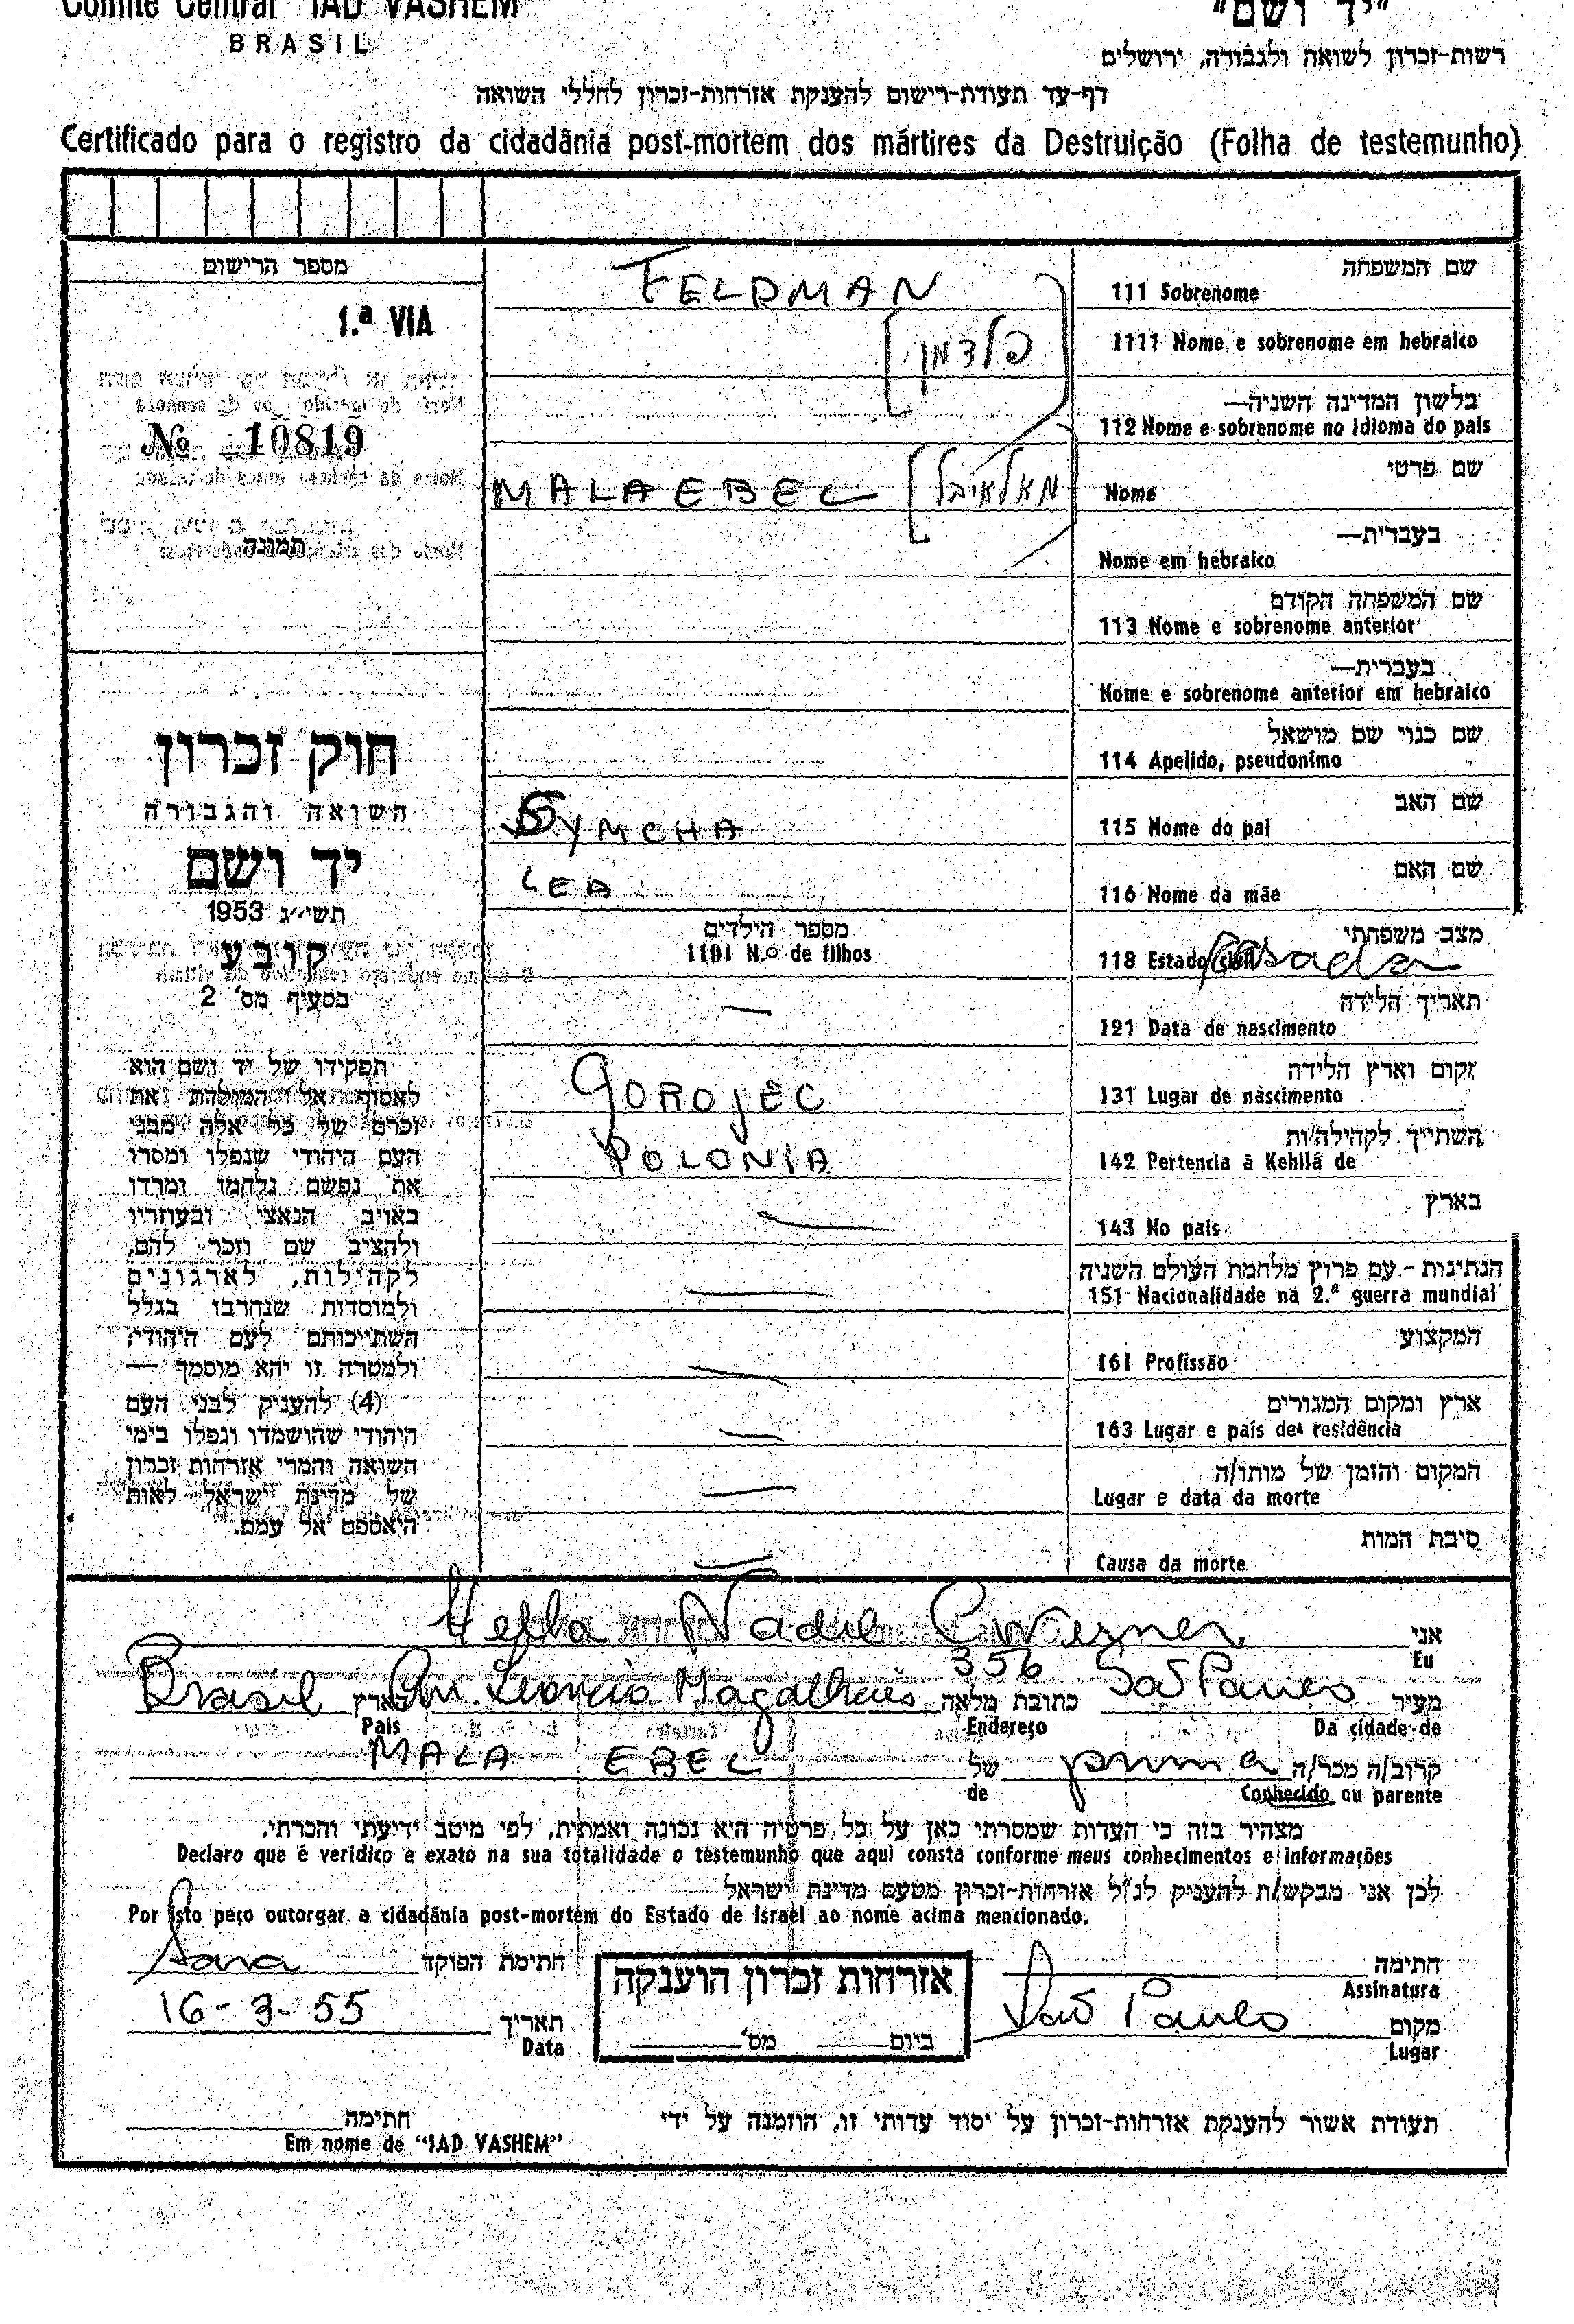 Comité Central "IAD VASHEM"
BRASIL
"יד ושם"
רשות-זכרון לשואה ולגבורה, ירושלים
דף-עד תעודת-רישום להענקת אזרחות-זכרון לחללי השואה
Certificado para o registro da cidadânia post-mortem dos mártires da Destruição (Folha de testemunho)
מספר הרישום
1.ª VIA
№ 10819
תמונה
חוק זכרון
השואה והגבורה
יד ושם
תשי״ג 1953
קובע
בסעיף מס' 2
תפקידו של יד ושם הוא
לאסוף אל המולדת את
זכרם של כל אלה מבני
העם היהודי שנפלו ומסרו
את נפשם נלחמו ומרדו
באויב הנאצי ובעוזריו
ולהציב שם וזכר להם,
לקהילות, לארגונים
ולמוסדות שנחרבו בגלל
השתייכותם לעם היהודי
ולמטרה זו יהא מוסמך —
(4) להעניק לבני העם
היהודי שהושמדו ונפלו בימי
השואה והמרי אזרחות זכרון
של מדינת ישראל לאות
היאספם אל עמם.
שם המשפחה
111 Sobrenome FELDMAN
1111 Nome e sobrenome em hebraico [פלדמן]
בלשון המדינה השניה—
112 Nome e sobrenome no idioma do pais
שם פרטי
Nome MALA EBEL [מאלאיבל]
בעברית—
Nome em hebraico
שם המשפחה הקודם
113 Nome e sobrenome anterior
בעברית—
Nome e sobrenome anterior em hebraico
שם כנוי שם מושאל
114 Apelido, pseudonimo
שם האב
115 Nome do pai SYMCHA
שם האם
116 Nome da mãe LEA
מספר הילדים
1191 N.º de filhos
מצב משפחתי
118 Estado civil Casada
תאריך הלידה
121 Data de nascimento —
מקום וארץ הלידה
131 Lugar de nascimento GOROJEC
השתייך לקהילה/ות
142 Pertencia à Kehilá de POLONIA
בארץ
143 No pais —
הנתינות - עם פרוץ מלחמת העולם השניה
151 Nacionalidade na 2.ª guerra mundial —
המקצוע
161 Profissão —
ארץ ומקום המגורים
163 Lugar e pais de residência —
המקום והזמן של מותו/ה
Lugar e data da morte —
סיבת המות
Causa da morte —
אני
Eu Helba Nadel
מעיר São Paulo כתובת מלאה 356 Av. Leoncio Magalhães בארץ Brasil
Da cidade de Endereço Pais
קרוב/ה מכר/ה prima של MALA EBEL
Conhecido ou parente de
מצהיר בזה כי העדות שמסרתי כאן על כל פרטיה היא נכונה ואמתית, לפי מיטב ידיעתי והכרתי.
Declaro que é veridico e exato na sua totalidade o testemunho que aqui consta conforme meus conhecimentos e informações
לכן אני מבקש/ת להעניק לנ"ל אזרחות-זכרון מטעם מדינת ישראל
Por isto peço outorgar a cidadânia post-mortem do Estado de Israel ao nome acima mencionado.
חתימה
Assinatura
חתימת הפוקד Sara
מקום São Paulo
Lugar
תאריך 16-3-55
Data
אזרחות זכרון הוענקה
ביום מס'
תעודת אשור להענקת אזרחות-זכרון על יסוד עדותי זו, הוזמנה על ידי
חתימה
Em nome de "JAD VASHEM"